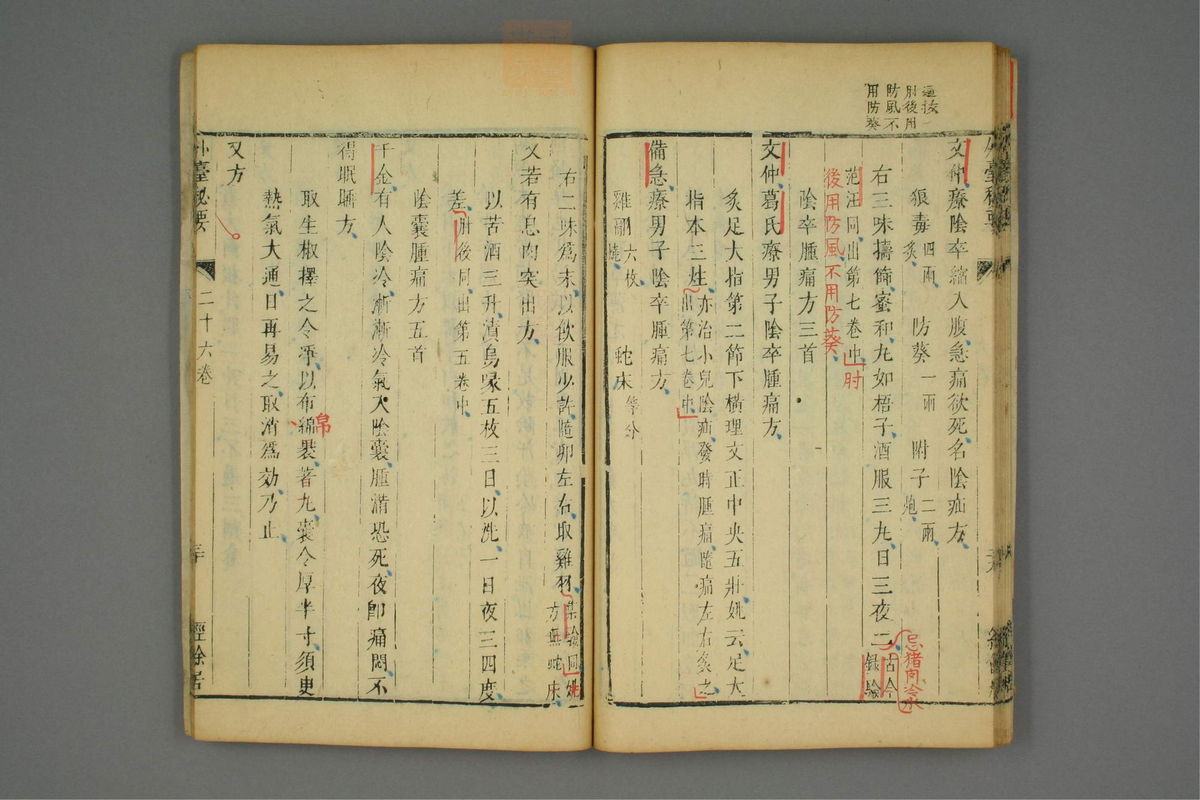 用防葵
防風不
肘後用
外臺秘要
文仲療陰卒縮入腹急痛欲死名陰疝方
狼毒四兩炙 防葵一兩 附子二兩炮
右三味擣篩蜜和丸如梧子酒服三丸日三夜二古今錄驗
忌猪肉冷水
范汪同出第七卷中
肘
後用防風不用防葵
陰卒腫痛方三首
文仲葛氏療男子陰卒腫痛方
炙足大指第二節下橫理文正中央五壯姚云足大
指本三壯亦治小兒陰疝發時腫痛隨痛左右炙之出第七卷中
備急療男子陰卒腫痛方
雞翮六枚燒 蛇床等分
右二味爲末以飲服少許隨卵左右取雞羽集驗同姚方無蛇床
又若有息肉突出方
以苦酒三升漬烏喙五枚三日以洗一日夜三四度
差肘後同出第五卷中
陰囊腫痛方五首
千金有人陰冷漸漸冷氣入陰囊腫滿恐死夜卽痛悶不
得眠睡方
取生椒擇之令淨以布綿裹著丸囊令厚半寸須臾
帛
熱氣大通日再易之取消爲効乃止
又方
外臺秘要 二十六卷 經餘居